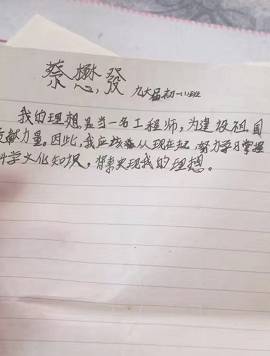 蔡懋發 九六届初一
我的理想是当一名工程师,为建设祖国
贡献力量。因此,我应该要从现在起努力学习掌握
科学文化知识,将来实现我的理想。